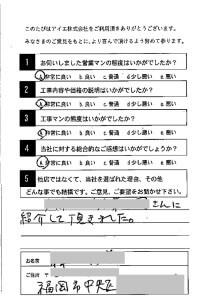 このたびはアイエ株式会社をご利用頂きありがとうございます。
みなさまのご意見をもとに、より喜んで頂けるよう努めて参ります。
1 お伺いしました営業マンの態度はいかがでしたか?
a.非常に良い b.良い c.普通 d.少し悪い e.悪い
2 工事内容や価格の説明はいかがでしたか?
a.非常に良い b.良い c.普通 d.少し悪い e.悪い
3 工事マンの態度はいかがでしたか?
a.非常に良い b.良い c.普通 d.少し悪い e.悪い
4 当社に対する総合的なご感想はいかがでしょうか?
a.非常に良い b.良い c.普通 d.少し悪い e.悪い
5 他店ではなくて、当社を選ばれた理由、その他
どんな事でも結構です。ご意見、ご要望をお聞かせ下さい。
さんに
紹介して頂きました。
お名前
ご住所
福岡市中央区